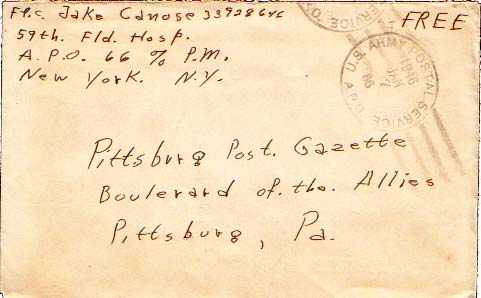 Pfc. Jake Canose 33928646
59th. Fld. Hosp.
A.P.O. 66 % P.M.
New York. N.Y.
FREE
SERVICE
U.S. ARMY POSTAL SERVICE
A.P.O. 66
JAN
7
1946
Pittsburg Post. Gazette
Boulevard of. the. Allies
Pittsburg, Pa.